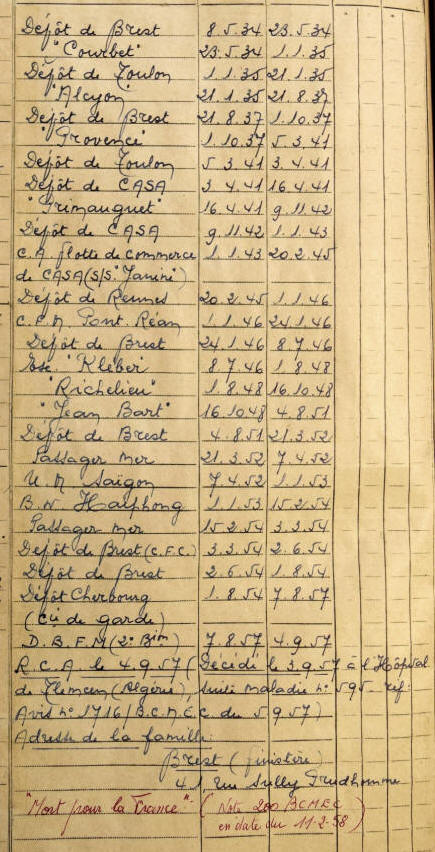 Dépôt de Brest 8.5.34 23.5.34
"Courbet" 23.5.34 1.1.35
Dépôt de Toulon 1.1.35 21.1.35
"Alcyon" 21.1.35 21.8.37
Dépôt de Brest 21.8.37 1.10.37
"Provence" 1.10.37 5.3.41
Dépôt de Toulon 5.3.41 3.4.41
Dépôt de CASA 3.4.41 16.4.41
"Primauguet" 16.4.41 9.11.42
Dépôt de CASA 9.11.42 1.1.43
C.A. flotte de commerce 1.1.43 20.2.45
de CASA (S/S. Janine)
Dépôt de Rennes 20.2.45 1.1.46
C.F.M. Pont. Réan 1.1.46 24.1.46
Dépôt de Brest 24.1.46 8.7.46
"Kléber" 8.7.46 1.8.48
"Richelieu" 1.8.48 16.10.48
"Jean Bart" 16.10.48 4.8.51
Dépôt de Brest 4.8.51 21.3.52
Passager mer 21.3.52 7.4.52
U.M Saïgon 7.4.52 1.1.53
B.N Haïphong 1.1.53 15.2.54
Passager mer 15.2.54 3.3.54
Dépôt de Brest (C.F.C.) 3.3.54 2.6.54
Dépôt de Brest 2.6.54 1.8.54
Dépôt Cherbourg 1.8.54 7.8.57
(Cie de garde)
D.B.F.M (2° Bim) 7.8.57 4.9.57
R.C.A. le 4.9.57 (Décédé le 3.9.57 à l'Hôpital
de Tlemcen (Algérie), suite maladie n° 595 - réf:
Avis n° 1716/B.C.M.E.C. du 5.9.57)
Adresse de la famille:
Brest (finistère)
41, rue Sully Prudhomme
"Mort pour la France" - (Note 200 BCMEC
en date du 11-2-58)